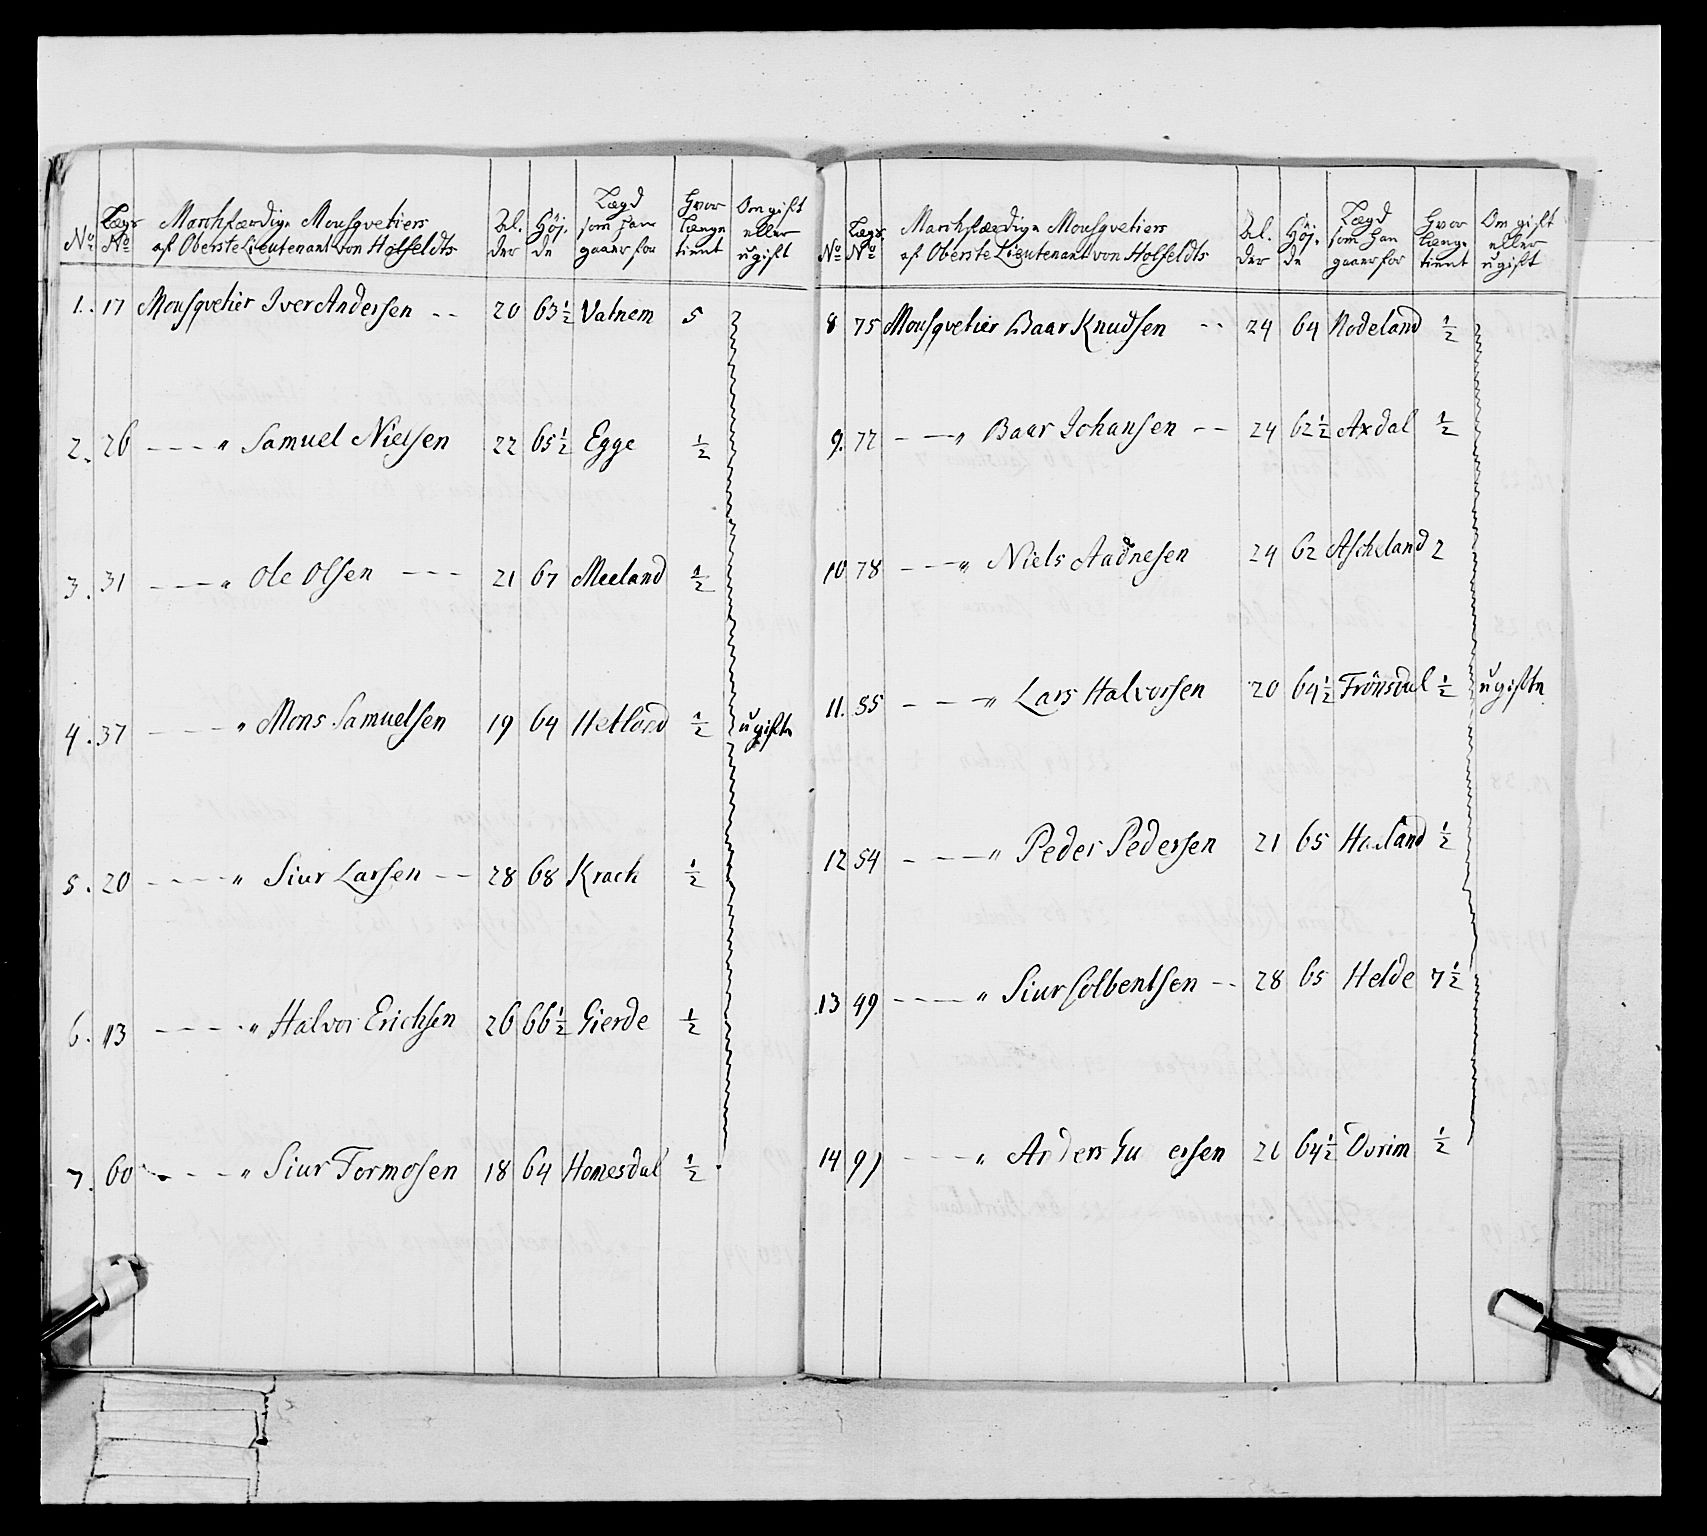 No. Lægs No. Marchfærdige Mousqvetiers af Oberste Lieutenant von Holfeldts Al. der Höj. de Lægd som han gaaer for Hvor længe tient Om gift eller ugift
1. 17 Mousqvetier Iver Andersen -- 20 63½ Vatnem 5
2. 26 ---- " Samuel Nielsen 22 65½ Egge ½
3. 31 ---- " Ole Olsen --- 21 67 Meeland ½
4. 37 ---- " Mons Samuelsen 19 64 Hetland ½ ugifte
5. 20 ---- " Siur Larsen -- 28 68 Krach ½
6. 13 ---- " Halvor Erichsen 26 66½ Gierde ½
7. 60 ---- " Siur Tormosen 18 64 Homesdal ½
No. Lægs No. Marchfærdige Mousqvetiers af Oberste Lieutenant von Holfeldts Al. der Höj. de Lægd som han gaaer for Hvor længe tient Om gift eller ugift
8 75 Mousqvetier Baar Knudsen -- 24 64 Rodeland ½
9. 77 --- " Baar Johansen -- 24 62½ Axdal ½
10 78 ---- " Niels Aadnesen 24 62 Ascheland 2
11. 55 ---- " Lars Halvorsen 20 64½ Frönsdal ½ ugifte
12 54 ---- " Peder Pedersen 21 65 ½
13 49 ---- " Siur Colbentsen -- 28 65 Helde 7½
14 91 ---- " Anders 21 64½ ½